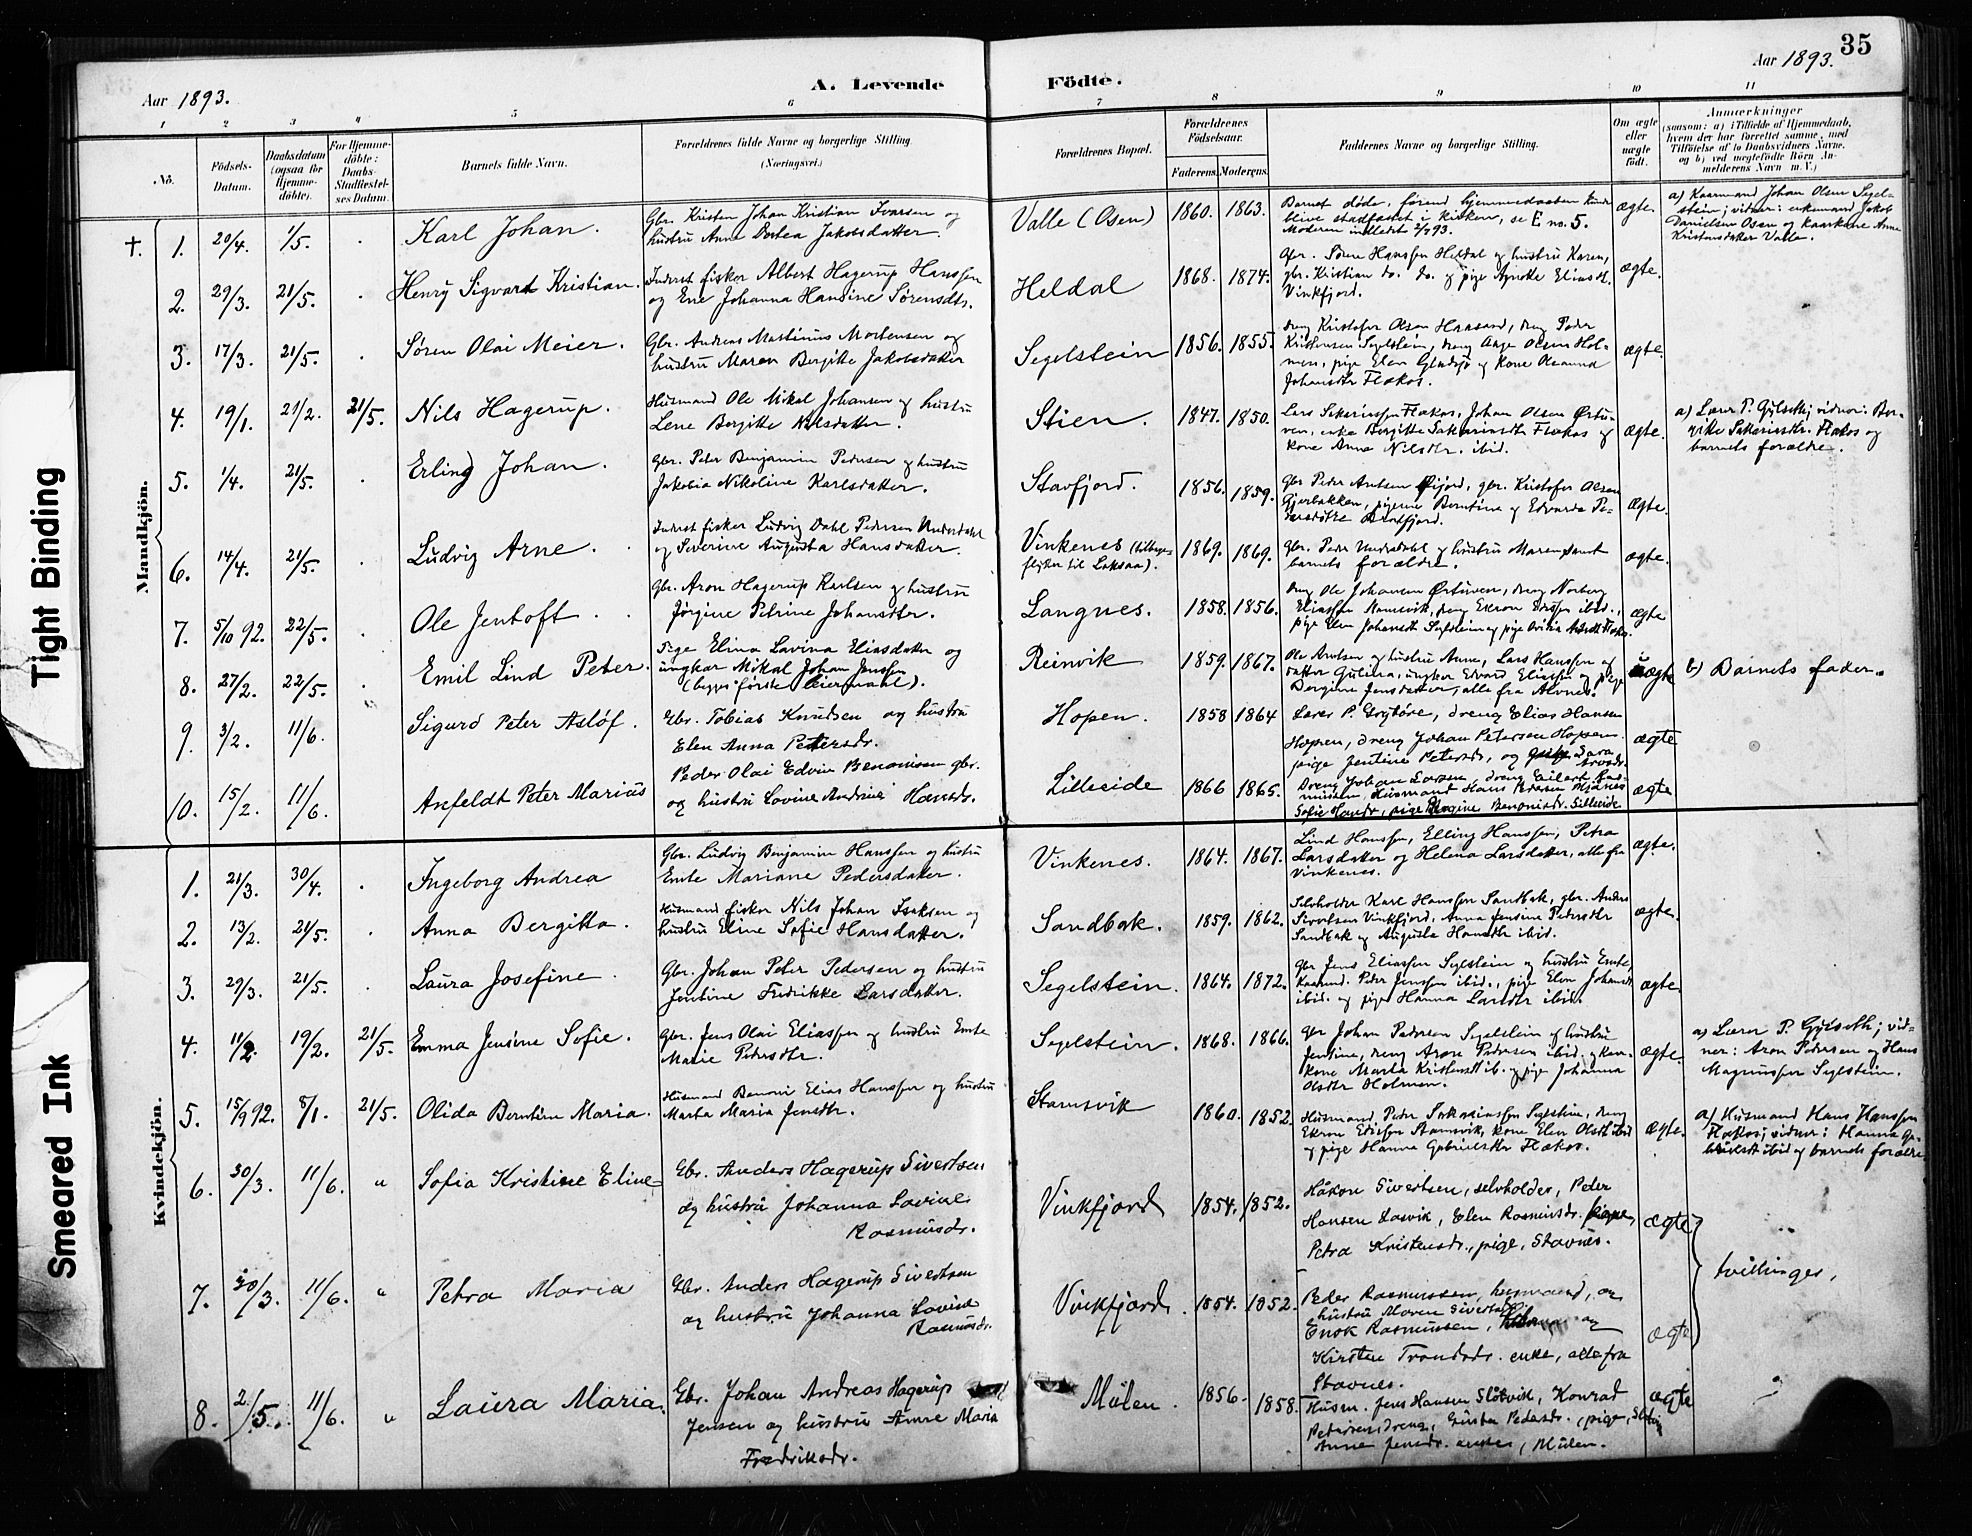 35
Aar 1893.
A. Levende
Födte.
Aar 1893.
1 2 3 4 5 6 7 8 9 10 11
No.
Födsels-Datum.
Daabsdatum (ogsaa for Hjemme-döbte).
For Hjemme-döbte: Daabs-Stadfæstel-ses Datum.
Barnets fulde Navn.
Forældrenes fulde Navne og borgerlige Stilling. (Næringsvei.)
Forældrenes Bopæl.
Forældrenes Födselsaar.
Faderens. Moderens.
Faddernes Navne og borgerlige Stilling.
Om ægte eller uægte födt.
Anmærkninger
(saasom: a) i Tilfælde af Hjemmedaab,
hvem der har forrettet samme, med
Tilföielse af to Daabsvidners Navne,
og b) ved uægtefödte Börn An-
melderens Navn m. V.)
Mandkjön.
†. 1. 20/4. 1/5. Karl Johan.
Gbr. Kristen Johan Kristian Ivarsen og
hustru Anne Dortea Jakobsdatter.
Valle (Osen) 1860. 1863.
Barnet döde, förend hjemmedaaben kunde
blive stadfæstet i kirken, se E no. 5.
Moderen indledet 2/7 93.
ægte.
a) Kaarmand Johan Olsen Segel-
stein; vidner: enkemand Jakob
Danielsen Osen og kaarkone Anne
Kristensdatter Valle.
2. 29/3. 21/5. Henry Sigvart Kristian.
Inderst fisker Albert Hagerup Hanssen
og Ene Johanna Hansine Sörensdtr.
Heldal 1868. 1874.
Gbr. Sören Hanssen Heldal og hustru Karen,
gbr. Kristian do. do. og pige Agnete Eliasdt.
Vinkfjord.
ægte.
3. 17/3. 21/5. Sören Olai Meier.
Gbr. Andreas Mattinus Mortensen og
hustru Maren Bergitte Jakobsdatter
Segelstein 1856. 1855.
dreng Kristofer Olsen Hansand, dreng Peder
Kristensen Segelstein, dreng Aage Olsen Hol-
men, pige Elen Gladsjö og kone Oleanna
Johansdtr Flakos.
ægte.
4. 19/1. 21/2. 21/5. Nils Hagerup.
Husmand Ole Mikal Johansen og hustru
Lene Bergitte Nilsdatter.
Stien. 1847. 1850.
Lars Sakariassen Flakos, Johan Olsen Örtu-
ven, enke Bergitte Sakariasdtr Flakos og
kone Anne Nilsdtr. ibid.
ægte.
a) Lærer P. Gylseth; vidner: Ber-
gitte Sakariasdtr. Flakos og
barnets forældre.
5. 1/4. 21/5. Erling Johan.
Gbr. Peter Benjamin Pedersen og hustru
Jakobia Nikoline Karlsdatter.
Stavfjord. 1856. 1859.
Gbr Peder Antsen Öijord, gbr. Kristofer Olsen
Gjerbakken, pigerne Berntine og Edvarda Pe-
dersdötre Stavfjord.
ægte.
6. 14/4. 21/5. Ludvig Arne.
Inderst fisker Ludvig Dahl Pedersen Underdahl
og Severine Augusta Hansdatter.
Vinkenes (tilbage-
flytter til Laksaa). 1869. 1869.
Gbr. Peder Underdahl og hustru Maren samt
barnets forældre.
ægte.
7. 5/10 92. 22/5. Ole Jentoft.
Gbr. Aron Hagerup Karlsen og hustru
Jörgine Petrine Johansdtr.
Langnes. 1858. 1856.
dreng Ole Johansen Örtuven, dreng Norberg
Eliassen Stamsvik, dreng Ekron Edissen ibid.,
pige Elen Johansdt Segelstein og pige
ægte
8. 27/2. 22/5. Emil Lind Peter.
Pige Elina Lavina Eliasdatter og
ungkar Mikal Johan Jenssen
(begges förste leiermaal).
Reinvik 1859. 1867.
Ole Antsen og hustru Anne, Lars Hanssen og
datter Gulina, ungkar Edvard Eliassen og pige
Bergine Jensdatter, alle fra Alvnes.
uægte
b) Barnets fader.
9. 3/2. 11/6. Sigurd Peter Aslöf.
Gbr. Tobias Knudsen og hustru
Elen Anna Petersdr.
Hopen. 1858 1864
Lærer P. Grytöre, dreng Elias Hansen
Hopen, dreng Johan Petersen Hopen
pige Jentine Petersdr, og Sara
ægte
10. 15/2. 11/6. Anfeldt Peter Marius
Peder Olai Edvin Benonisen gbr.
og hustru Lovine Andrine Hansdr.
Lilleeide 1866 1865.
Dreng Johan Larsen, dreng Eilert Ras-
mussen, Husmand Hans Pedersen
Sofie Hansdr, pige Bergine Benonisdr. Lilleeide
ægte
Kvindekjön.
1. 21/3. 30/4. Ingeborg Andrea
Gbr. Ludvig Benjamin Hanssen og hustru
Emte Mariane Pedersdatter.
Vinkenes. 1864. 1867.
Lind Hanssen, Elling Hanssen, Petra
Larsdatter og Helena Larsdatter, alle fra
Vinkenes.
ægte.
2. 13/2. 21/5. Anna Bergitta.
Husmand fisker Nils Johan Isaksen og
hustru Eline Sofie Hansdatter.
Sandbak. 1859. 1862.
Selvholder Karl Hanssen Sandbak, gbr. Anders
Sivertsen Vinkfjord, Anna Jensine Pedersdtr
Sandbak og Augusta Hansdtr ibid.
ægte.
3. 29/3. 21/5. Laura Josefine.
Gbr. Johan Peter Pedersen og hustru
Jentine Fredrikke Larsdatter.
Segelstein. 1864. 1872.
gbr Jens Eliassen Segelstein og hustru Emte,
Kaarmd. Peder Jenssen ibid., pige Elen Johansdt
ibid. og pige Hanna Larsdtr ibid.
ægte.
4. 11/2. 19/2. 21/5. Emma Jensine Sofie.
Gbr. Jens Olai Eliassen og hustru Emte
Marie Pedersdtr.
Segelstein. 1868. 1866.
gbr Johan Pedersen Segelstein og hustru
Jentine, dreng Aron Pedersen ibid. og kaar-
kone Marta Kristensdt ib. og pige Johanna
Olsdtr Holmen.
ægte.
a) Lærer P. Gylseth; vid-
ner: Aron Pedersen og Hans
Magnussen Segelstein.
5. 15/9 92. 8/1. 21/5. Olida Berntine Maria.
Husmand Benoni Elias Hanssen og hustru
Marta Maria Jensdtr.
Stamsvik 1860. 1852.
Husmand Peder Sakariassen Segelstein, dreng
Ekron Edissen Stamsvik, kone Elen Olsdt ibid
og pige Hanna Gabrielsdtr Flakos.
ægte.
a) Husmand Hans Hanssen
Flakos; vidner: Hanna Ga-
brielsdt ibid og barnets forældre.
6. 30/3. 11/6. " Sofia Kristine Eline
Gbr. Anders Hagerup Sivertsen
og hustru Johanna Lovine
Rasmusdr.
Vinkfjord 1854. 1852.
Håkon Sivertsen, selvholder, Peder
Hansen Lasvik, Elen Rasmusdr.
Petra Kristensdr., pige, Stavnes.
ægte
tvillinger,
7. 30/3. 11/6. " Petra Maria
Gbr. Anders Hagerup Sivertsen
og hustru Johanna Lovine
Rasmusdr.
Vinkfjord. 1854. 1852.
Peder Rasmussen, husmand, og
hustru Maren Sivertsdr.
Enok Rasmussen, og
Kirsten Trondsdr. enke, alle fra
Stavnes.
ægte
8. 2/5. 11/6. " Laura Maria.
Gbr. Johan Andreas Hagerup
Jensen og hustru Anne Maria
Fredriksdr.
Mülen. 1856. 1858.
Husm. Jens Hansen Slotvik, Konrad
Pedersen, dreng, Pedersdr., pige,
Anne Jensdr. enke, Mülen.
ægte
Tight Binding
Smeared Ink